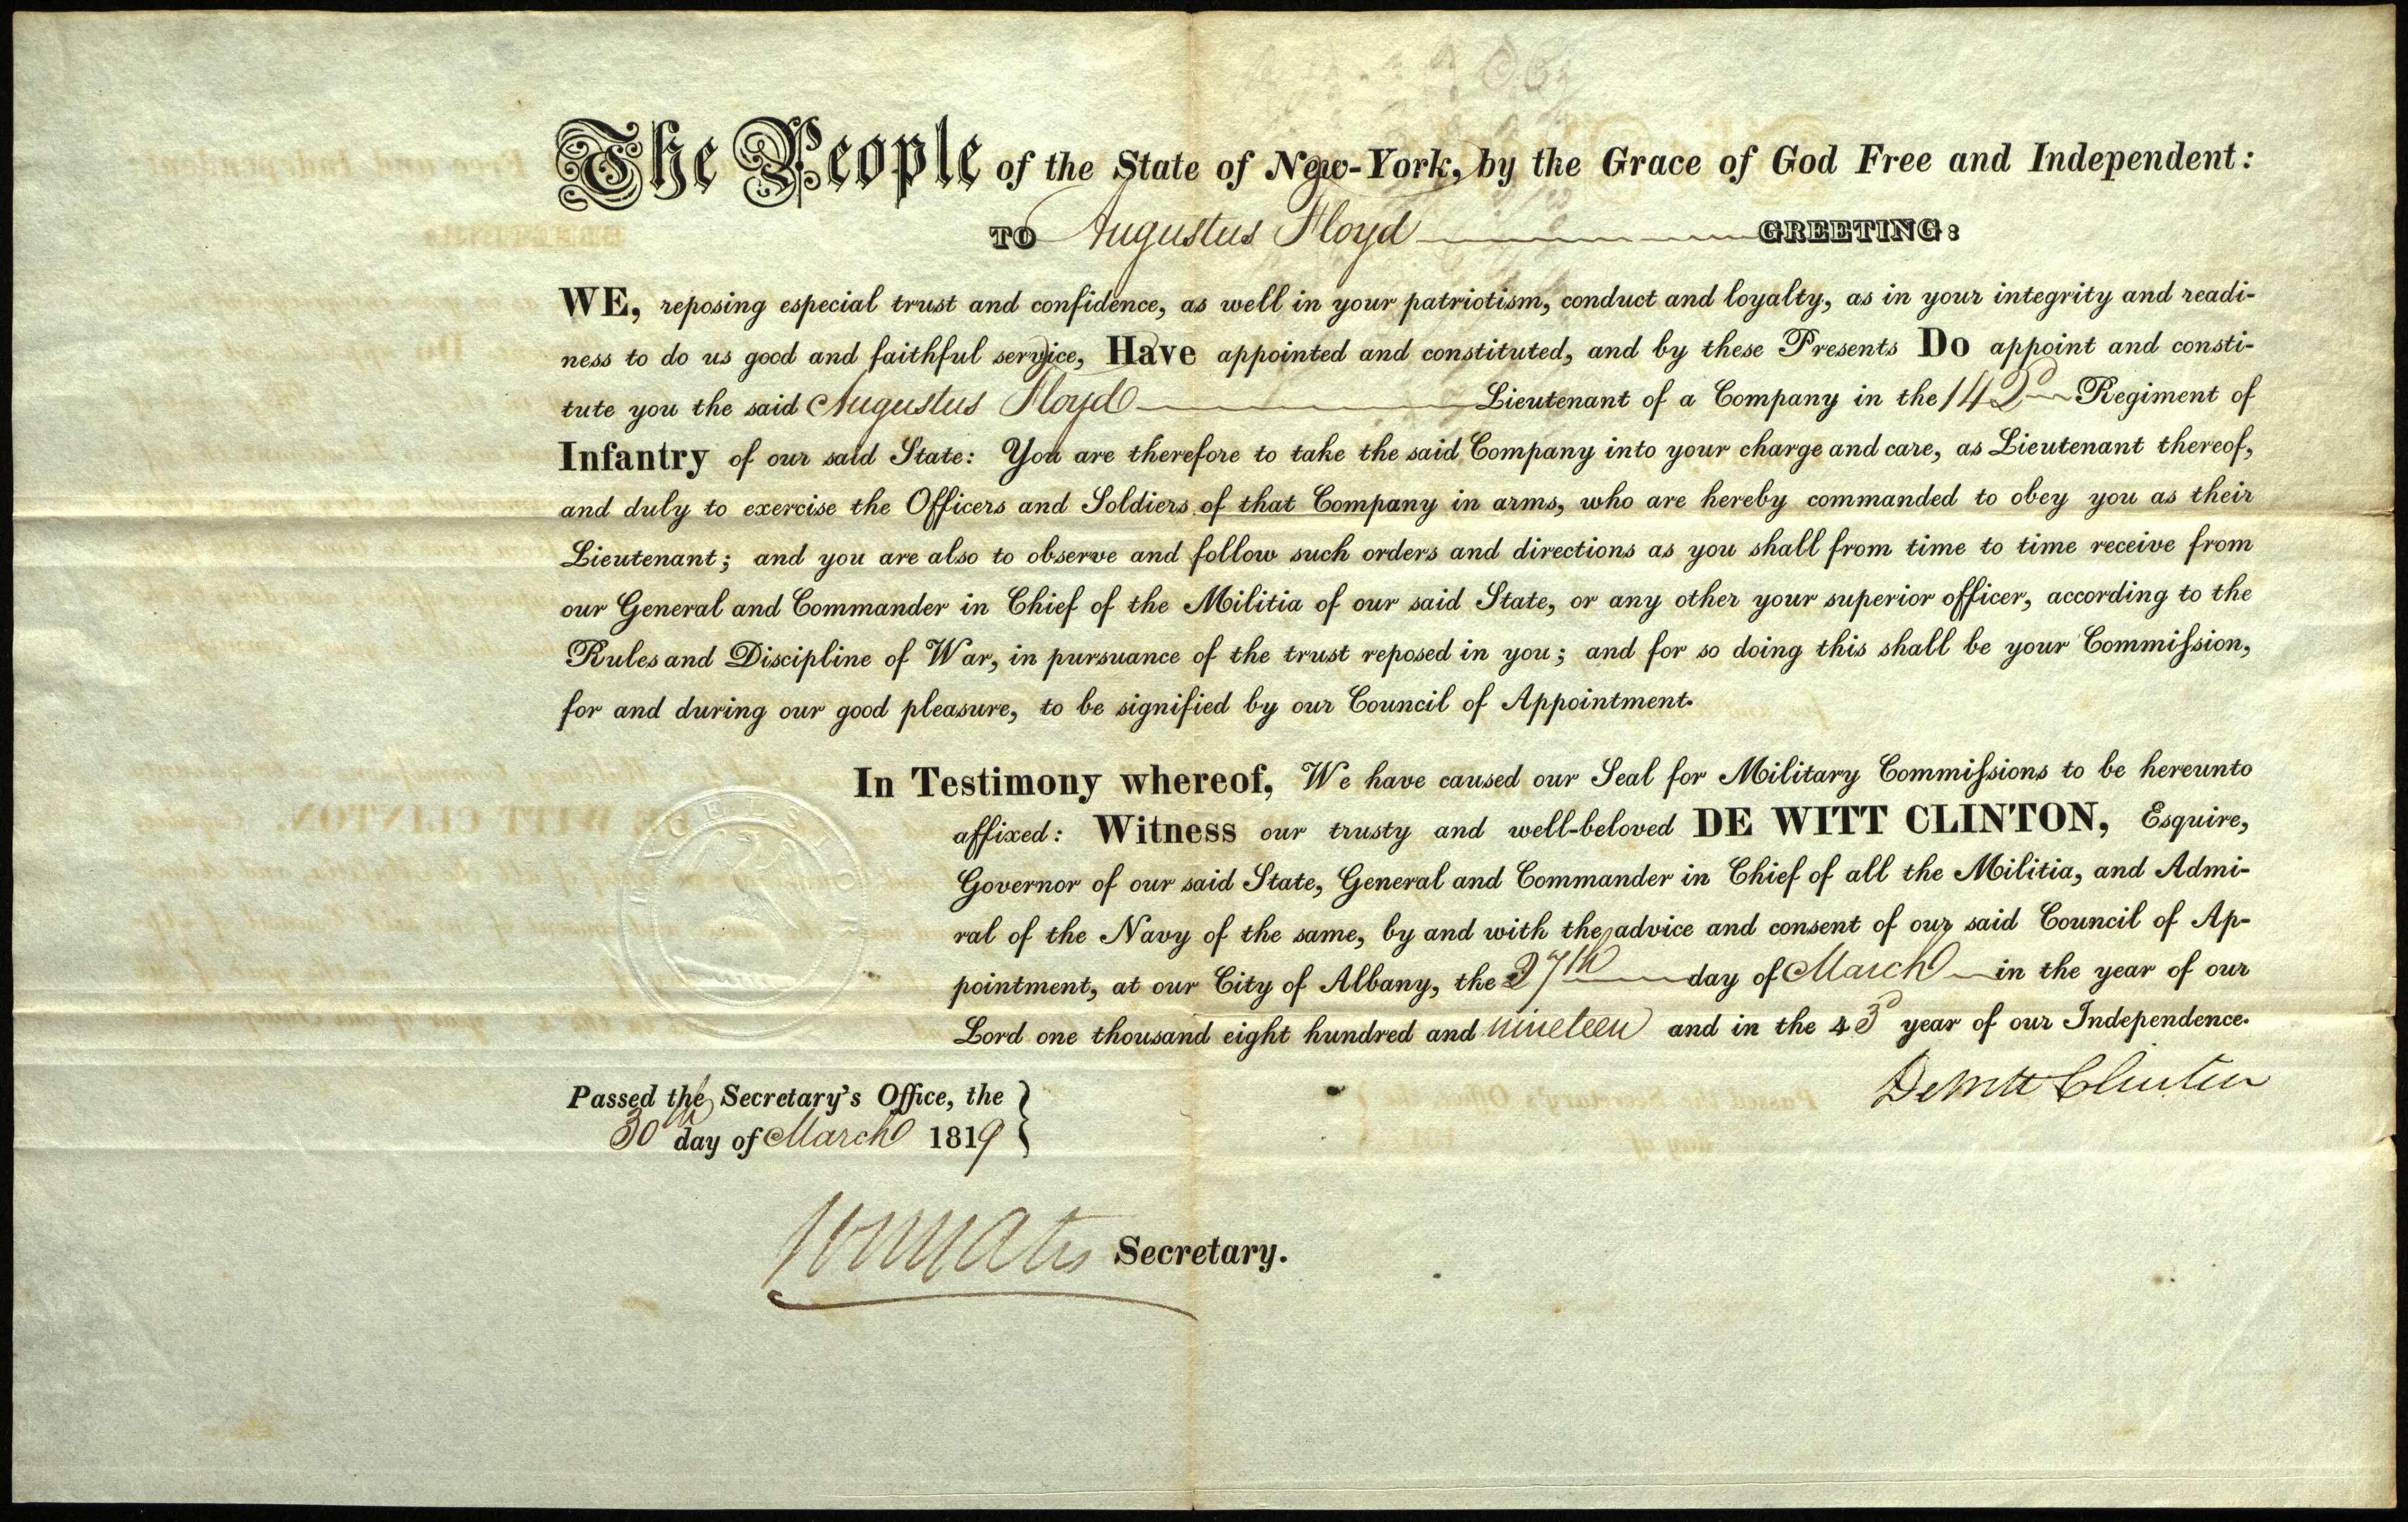 The People of the State of New-York, by the Grace of God Free and Independent:
TO Augustus Floyd GREETING:
WE, reposing especial trust and confidence, as well in your patriotism, conduct and loyalty, as in your integrity and readi-
ness to do us good and faithful service, Have appointed and constituted, and by these Presents Do appoint and consti-
tute you the said Augustus Floyd Lieutenant of a Company in the 142d Regiment of
Infantry of our said State: You are therefore to take the said Company into your charge and care, as Lieutenant thereof,
and duly to exercise the Officers and Soldiers of that Company in arms, who are hereby commanded to obey you as their
Lieutenant; and you are also to observe and follow such orders and directions as you shall from time to time receive from
our General and Commander in Chief of the Militia of our said State, or any other your superior officer, according to the
Rules and Discipline of War, in pursuance of the trust reposed in you; and for so doing this shall be your Commiſsion,
for and during our good pleasure, to be signified by our Council of Appointment.
In Testimony whereof, We have caused our Seal for Military Commiſsions to be hereunto
affixed: Witness our trusty and well-beloved DE WITT CLINTON, Esquire,
Governor of our said State, General and Commander in Chief of all the Militia, and Admi-
ral of the Navy of the same, by and with the advice and consent of our said Council of Ap-
pointment, at our City of Albany, the 27th day of March in the year of our
Lord one thousand eight hundred and nineteen and in the 43d year of our Independence.
DeWitt Clinton
Passed the Secretary's Office, the
30th day of March 1819
Secretary.
EXCELSIOR